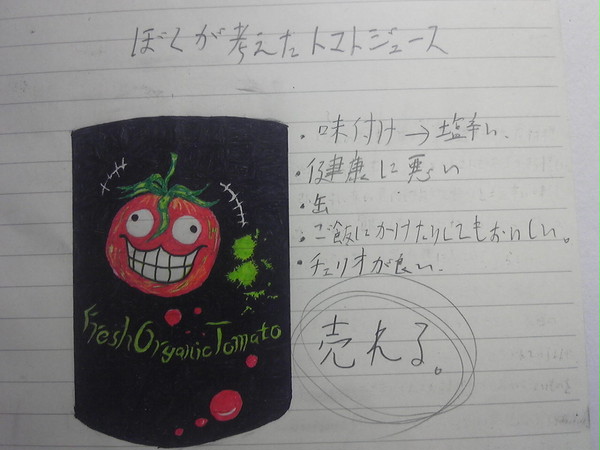 ぼくが考えたトマトジュース
・味付け→塩辛い.
・健康に悪い
・缶
・ご飯にかけたりしてもおいしい。
・チェリオが良い.
Fresh Organic Tomato
売れる。